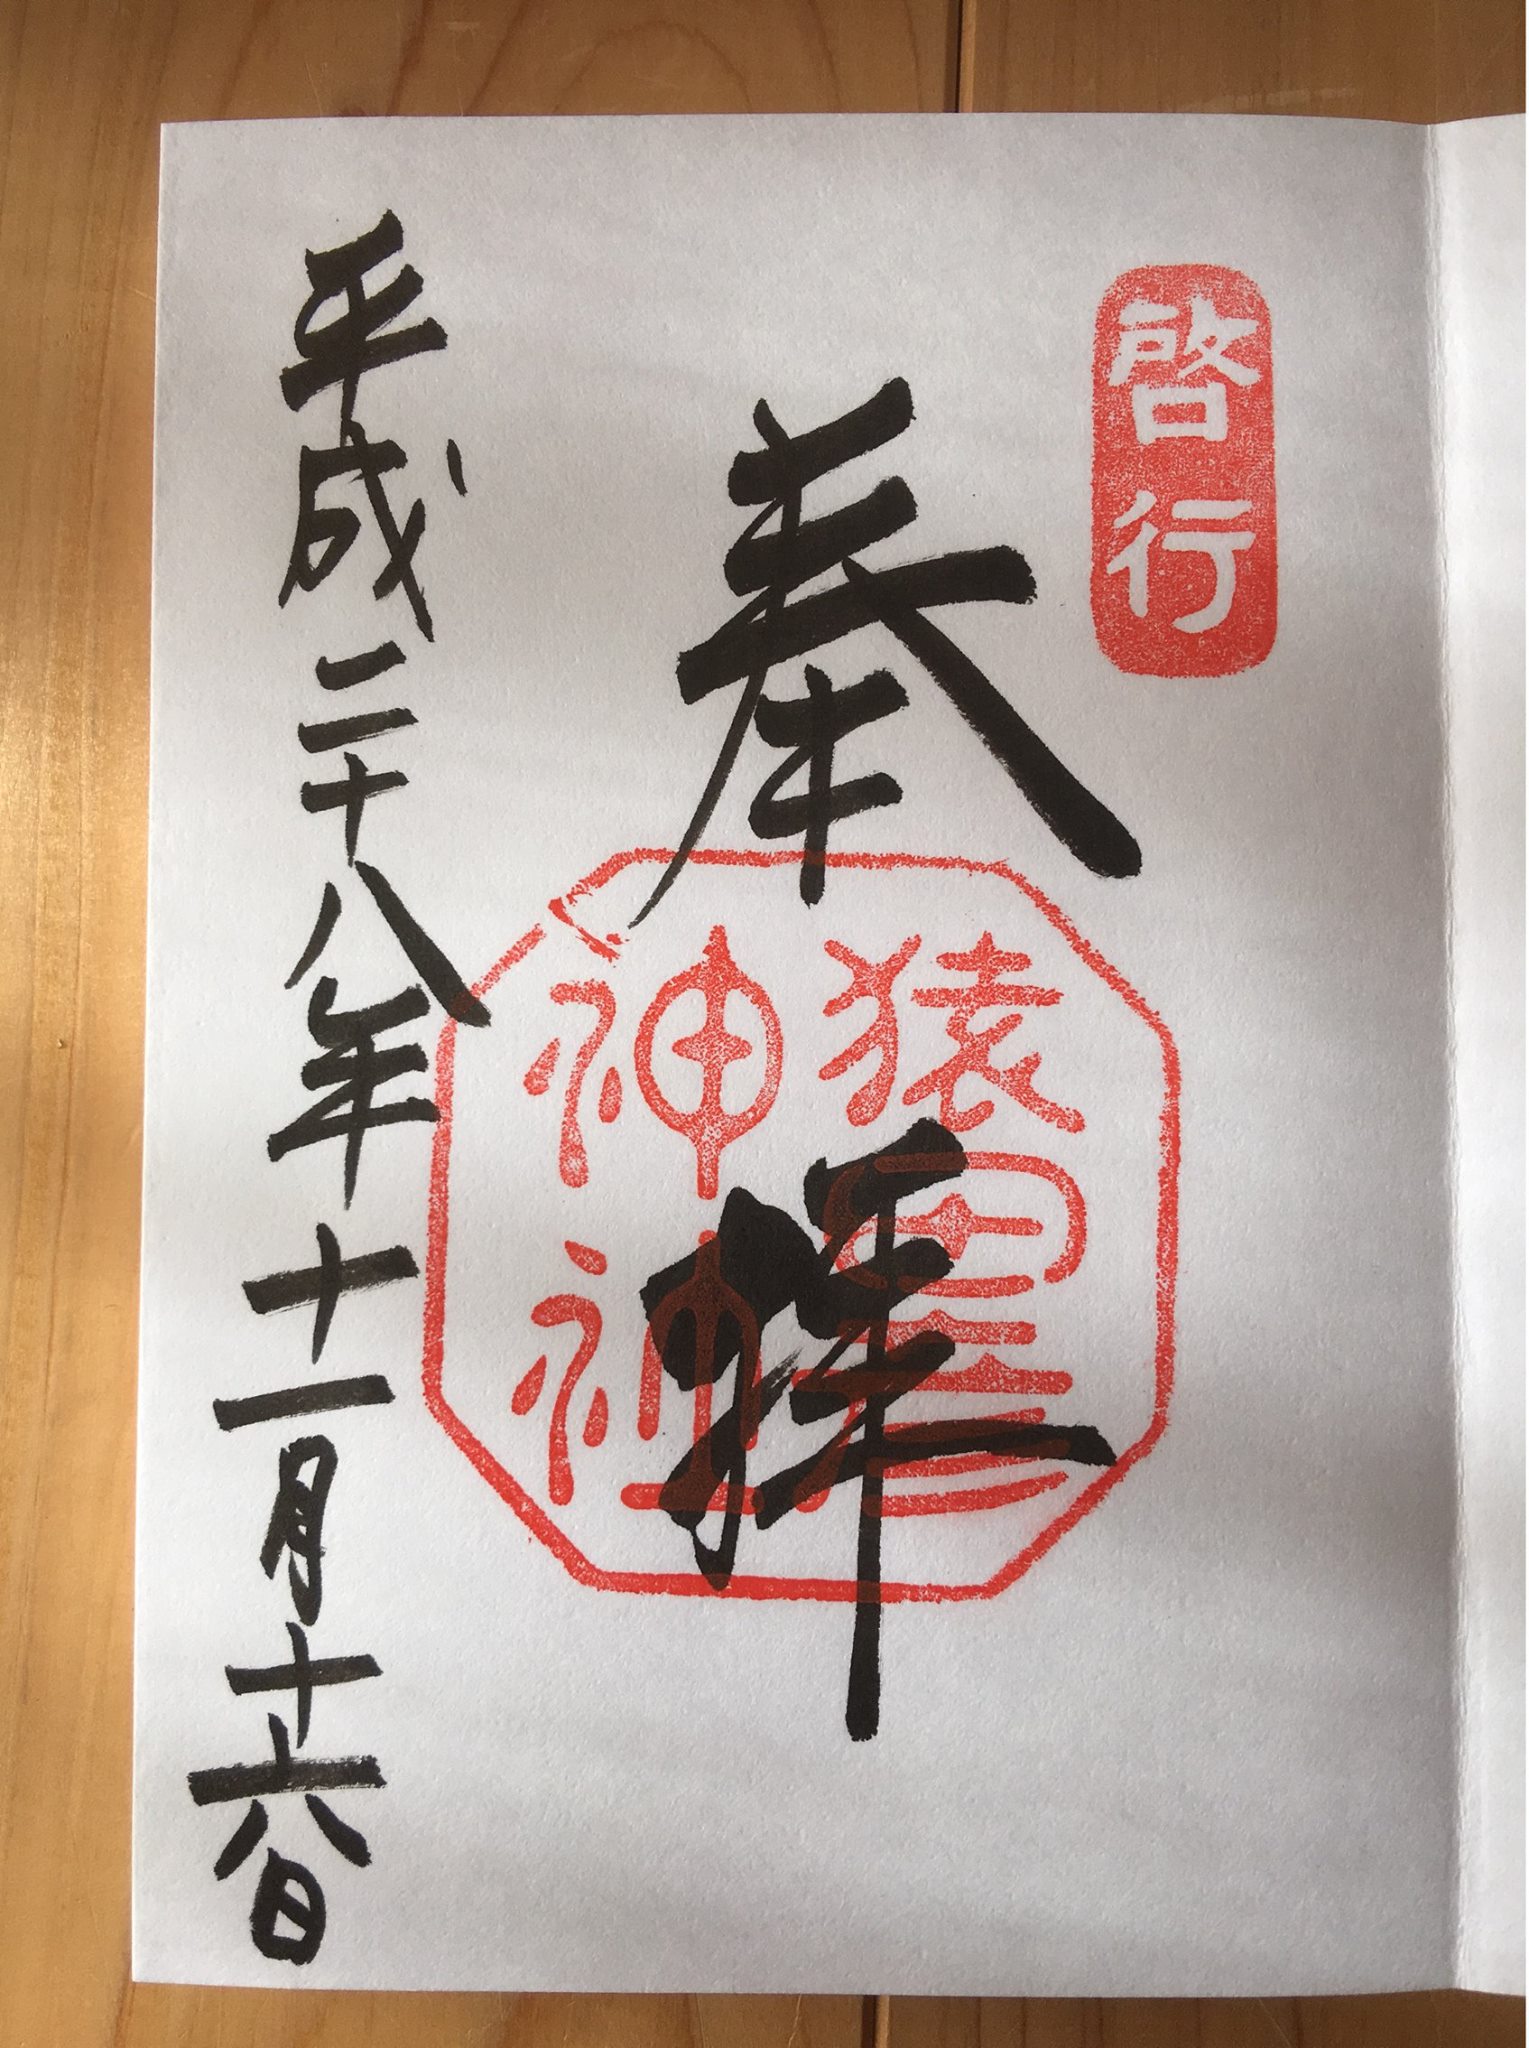 啓行
奉拝
猿田彦
神社
平成二十八年十一月十六日